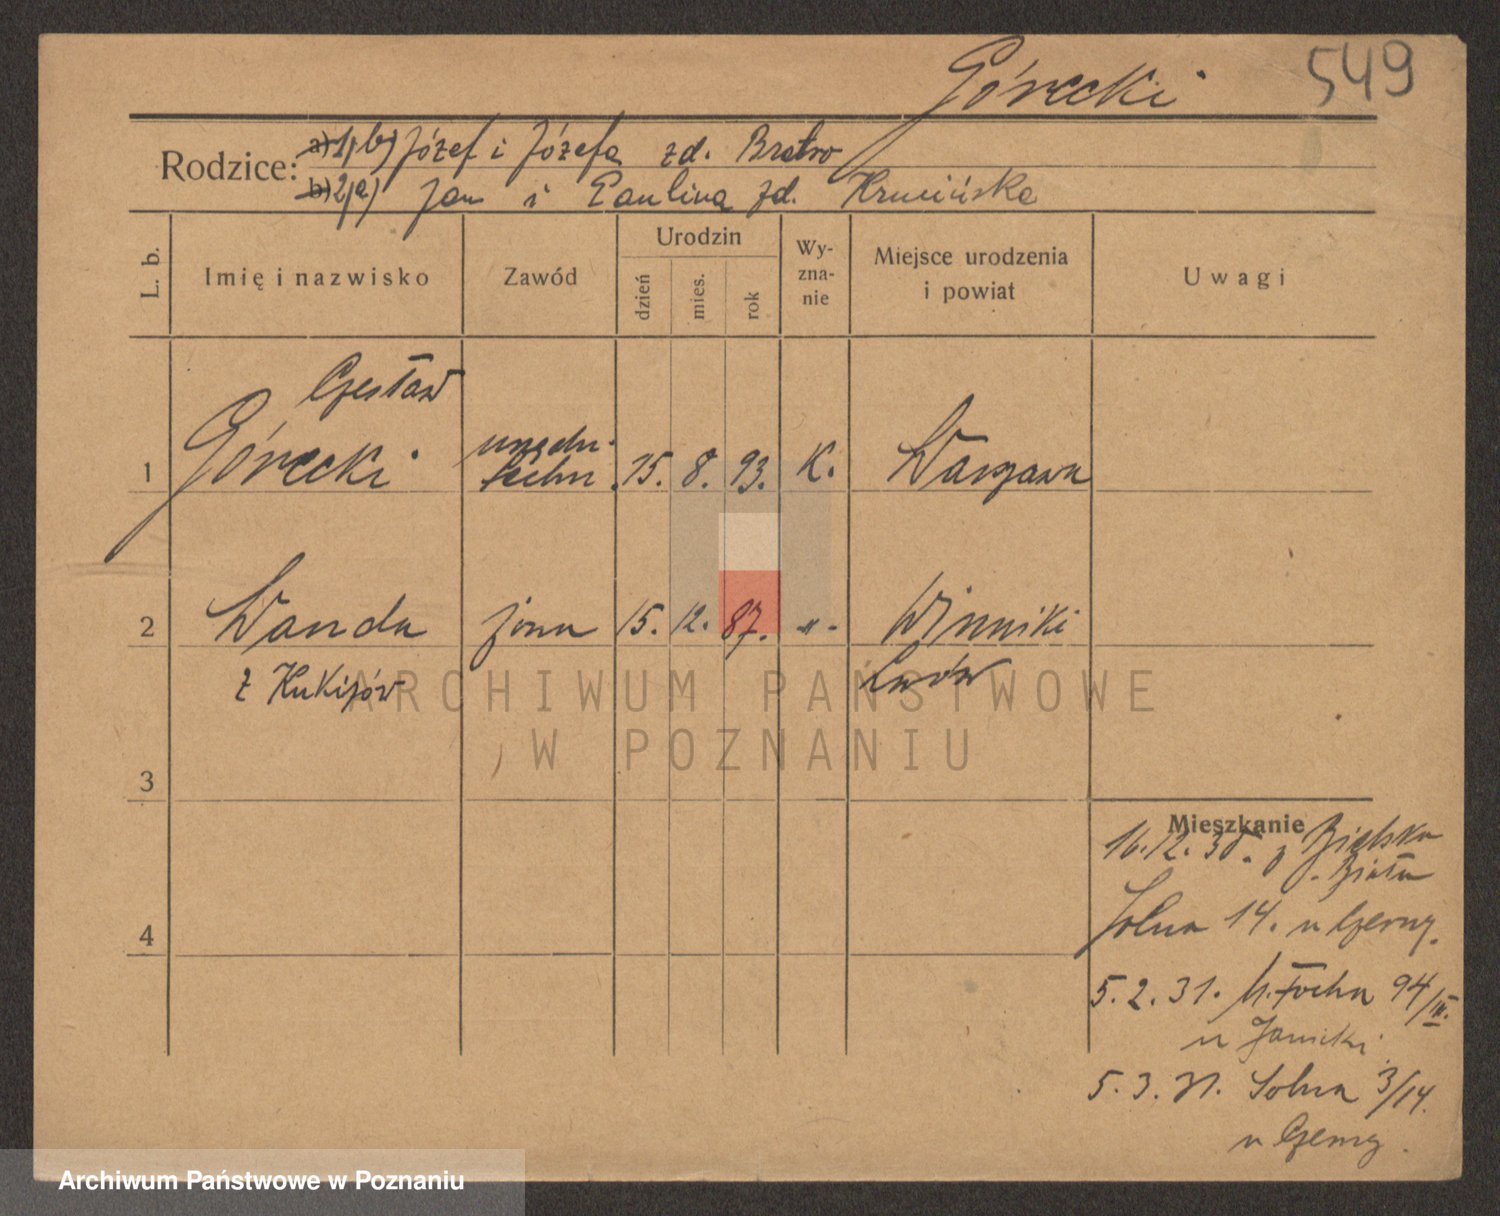 Górecki 549
Rodzice: a) 1/b) Józef i Józefa zd. Bratro
b) 2/a) Jan i Paulina zd.
L. b. Imię i nazwisko Zawód Urodzin dzień mies. rok Wy-zna-nie Miejsce urodzenia i powiat Uwagi
Czesław
1 Górecki urzędn. techn. 15. 8. 93. K. Warszawa
2 Wanda żona 15. 12. 87. -„- Winniki
z Kukizów Lwów
ARCHIWUM PAŃSTWOWE
W POZNANIU
3
Mieszkanie
16.12.30. z Bielska
- Biała
4
Solna 14. u
5.2.31. M. Focha 94/III.
u Janicki
5.3.31. Solna 3/14.
u
Archiwum Państwowe w Poznaniu